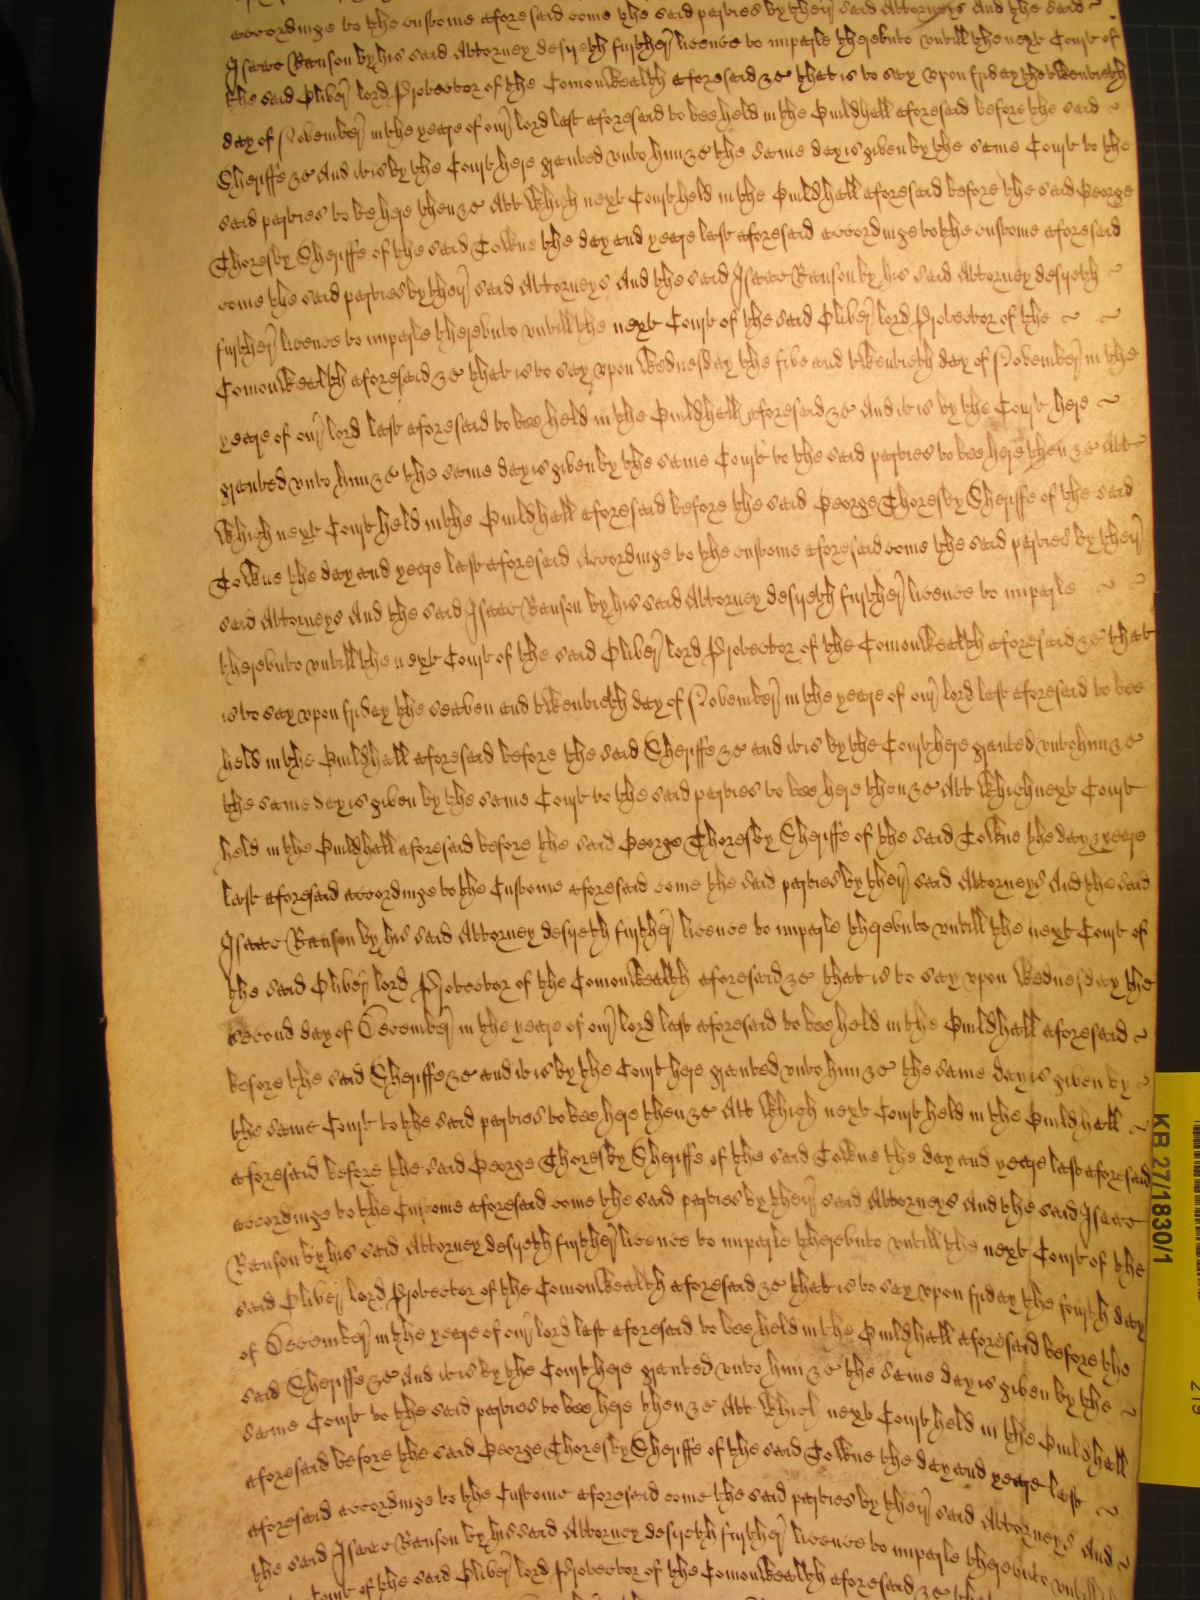 accordinge to the custome aforesaid come the said parties by their said Attorneys And the said
Isaac Ranson by his said Attorney desireth further licence to imparle thereunto untill the next Court of
the said Oliver lord Protector of the Comonwealth aforesaid &c that is to say upon friday the twentieth
day of November in the yeare of our lord last aforesaid to bee held in the Guildhall aforesaid before the said
Sheriffe &c And it is by the Court here granted unto him &c the same day is given by the same Court to the
said parties to be here then &c Att which next Court held in the Guildhall aforesaid before the said George
Thoresby Sheriffe of the said Towne the day and yeare last aforesaid accordinge to the custome aforesaid
come the said parties by their said Attorneys And the said Isaac Ranson by his said Attorney desireth
further licence to imparle thereunto untill the next Court of the said Oliver lord Protector of the
Comonwealth aforesaid &c that is to say upon wednesday the five and twentieth day of November in the
yeare of our lord last aforesaid to bee held in the Guildhall aforesaid &c And it is by the Court here
granted unto him &c the same day is given by the same Court to the said parties to bee here then &c Att
which next Court held in the Guildhall aforesaid before the said George Thoresby Sheriffe of the said
Towne the day and yeare last aforesaid accordinge to the custome aforesaid come the said parties by their
said Attorneys And the said Isaac Ranson by his said Attorney desireth further licence to imparle
thereunto untill the next Court of the said Oliver lord Protector of the Comonwealth aforesaid &c that
is to say upon friday the seaven and twentieth day of November in the yeare of our lord last aforesaid to bee
held in the Guildhall aforesaid before the said Sheriffe &c and it is by the Court here granted unto him &c
the same day is given by the same Court to the said parties to bee here then &c Att which next Court
held in the Guildhall aforesaid before the said George Thoresby Sheriffe of the said Towne the day & yeare
last aforesaid accordinge to the Custome aforesaid come the said parties by their said Attorneys And the said
Isaac Ranson by his said Attorney desireth further licence to imparle thereunto untill the next Court of
the said Oliver lord Protector of the Comonwealth aforesaid &c that is to say upon Wednesday the
second day of December in the yeare of our lord last aforesaid to bee held in the Guildhall aforesaid
before the said Sheriffe &c and it is by the Court here granted unto him &c the same day is given by
the same Court to the said parties to bee here then &c Att which next Court held in the Guildhall
aforesaid before the said George Thoresby Sheriffe of the said Towne the day and yeare last aforesaid
accordinge to the Custome aforesaid come the said parties by their said Attorneys And the said Isaac
Ranson by his said Attorney desireth further licence to imparle thereunto untill the next Court of the
said Oliver lord Protector of the Comonwealth aforesaid &c that is to say upon friday the fourth day
of December in the yeare of our lord last aforesaid to bee held in the Guildhall aforesaid before the
said Sheriffe &c And it is by the Court here granted unto him &c the same day is given by the
same Court to the said parties to bee here then &c Att which next Court held in the Guildhall
aforesaid before the said George Thoresby Sheriffe of the said Towne the day and yeare last
aforesaid accordinge to the Custome aforesaid come the said parties by their said Attorneys And
the said Isaac Ranson by his said Attorney desireth further licence to imparle thereunto untill
Court of the said Oliver lord Protector of the Comonwealth aforesaid &c that
KB 27/1830/1